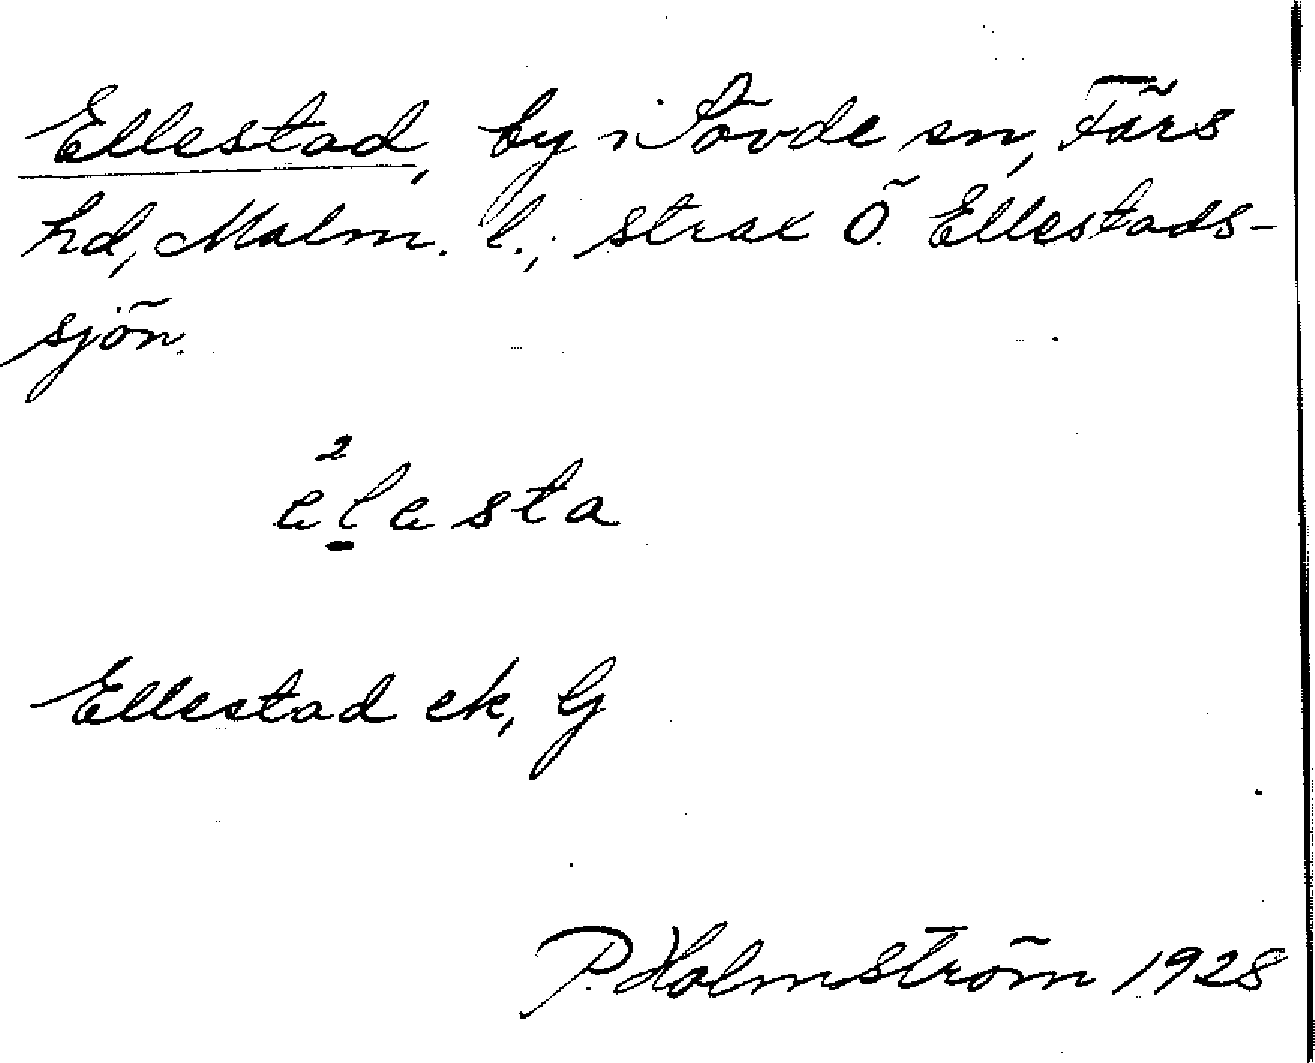 Ellestad, by i Sövde sn, Färs
hd, Malm. l.; strax Ö. Ellestads-
sjön.
e²l̠esta
Ellestad ek, G
P. Holmström 1928